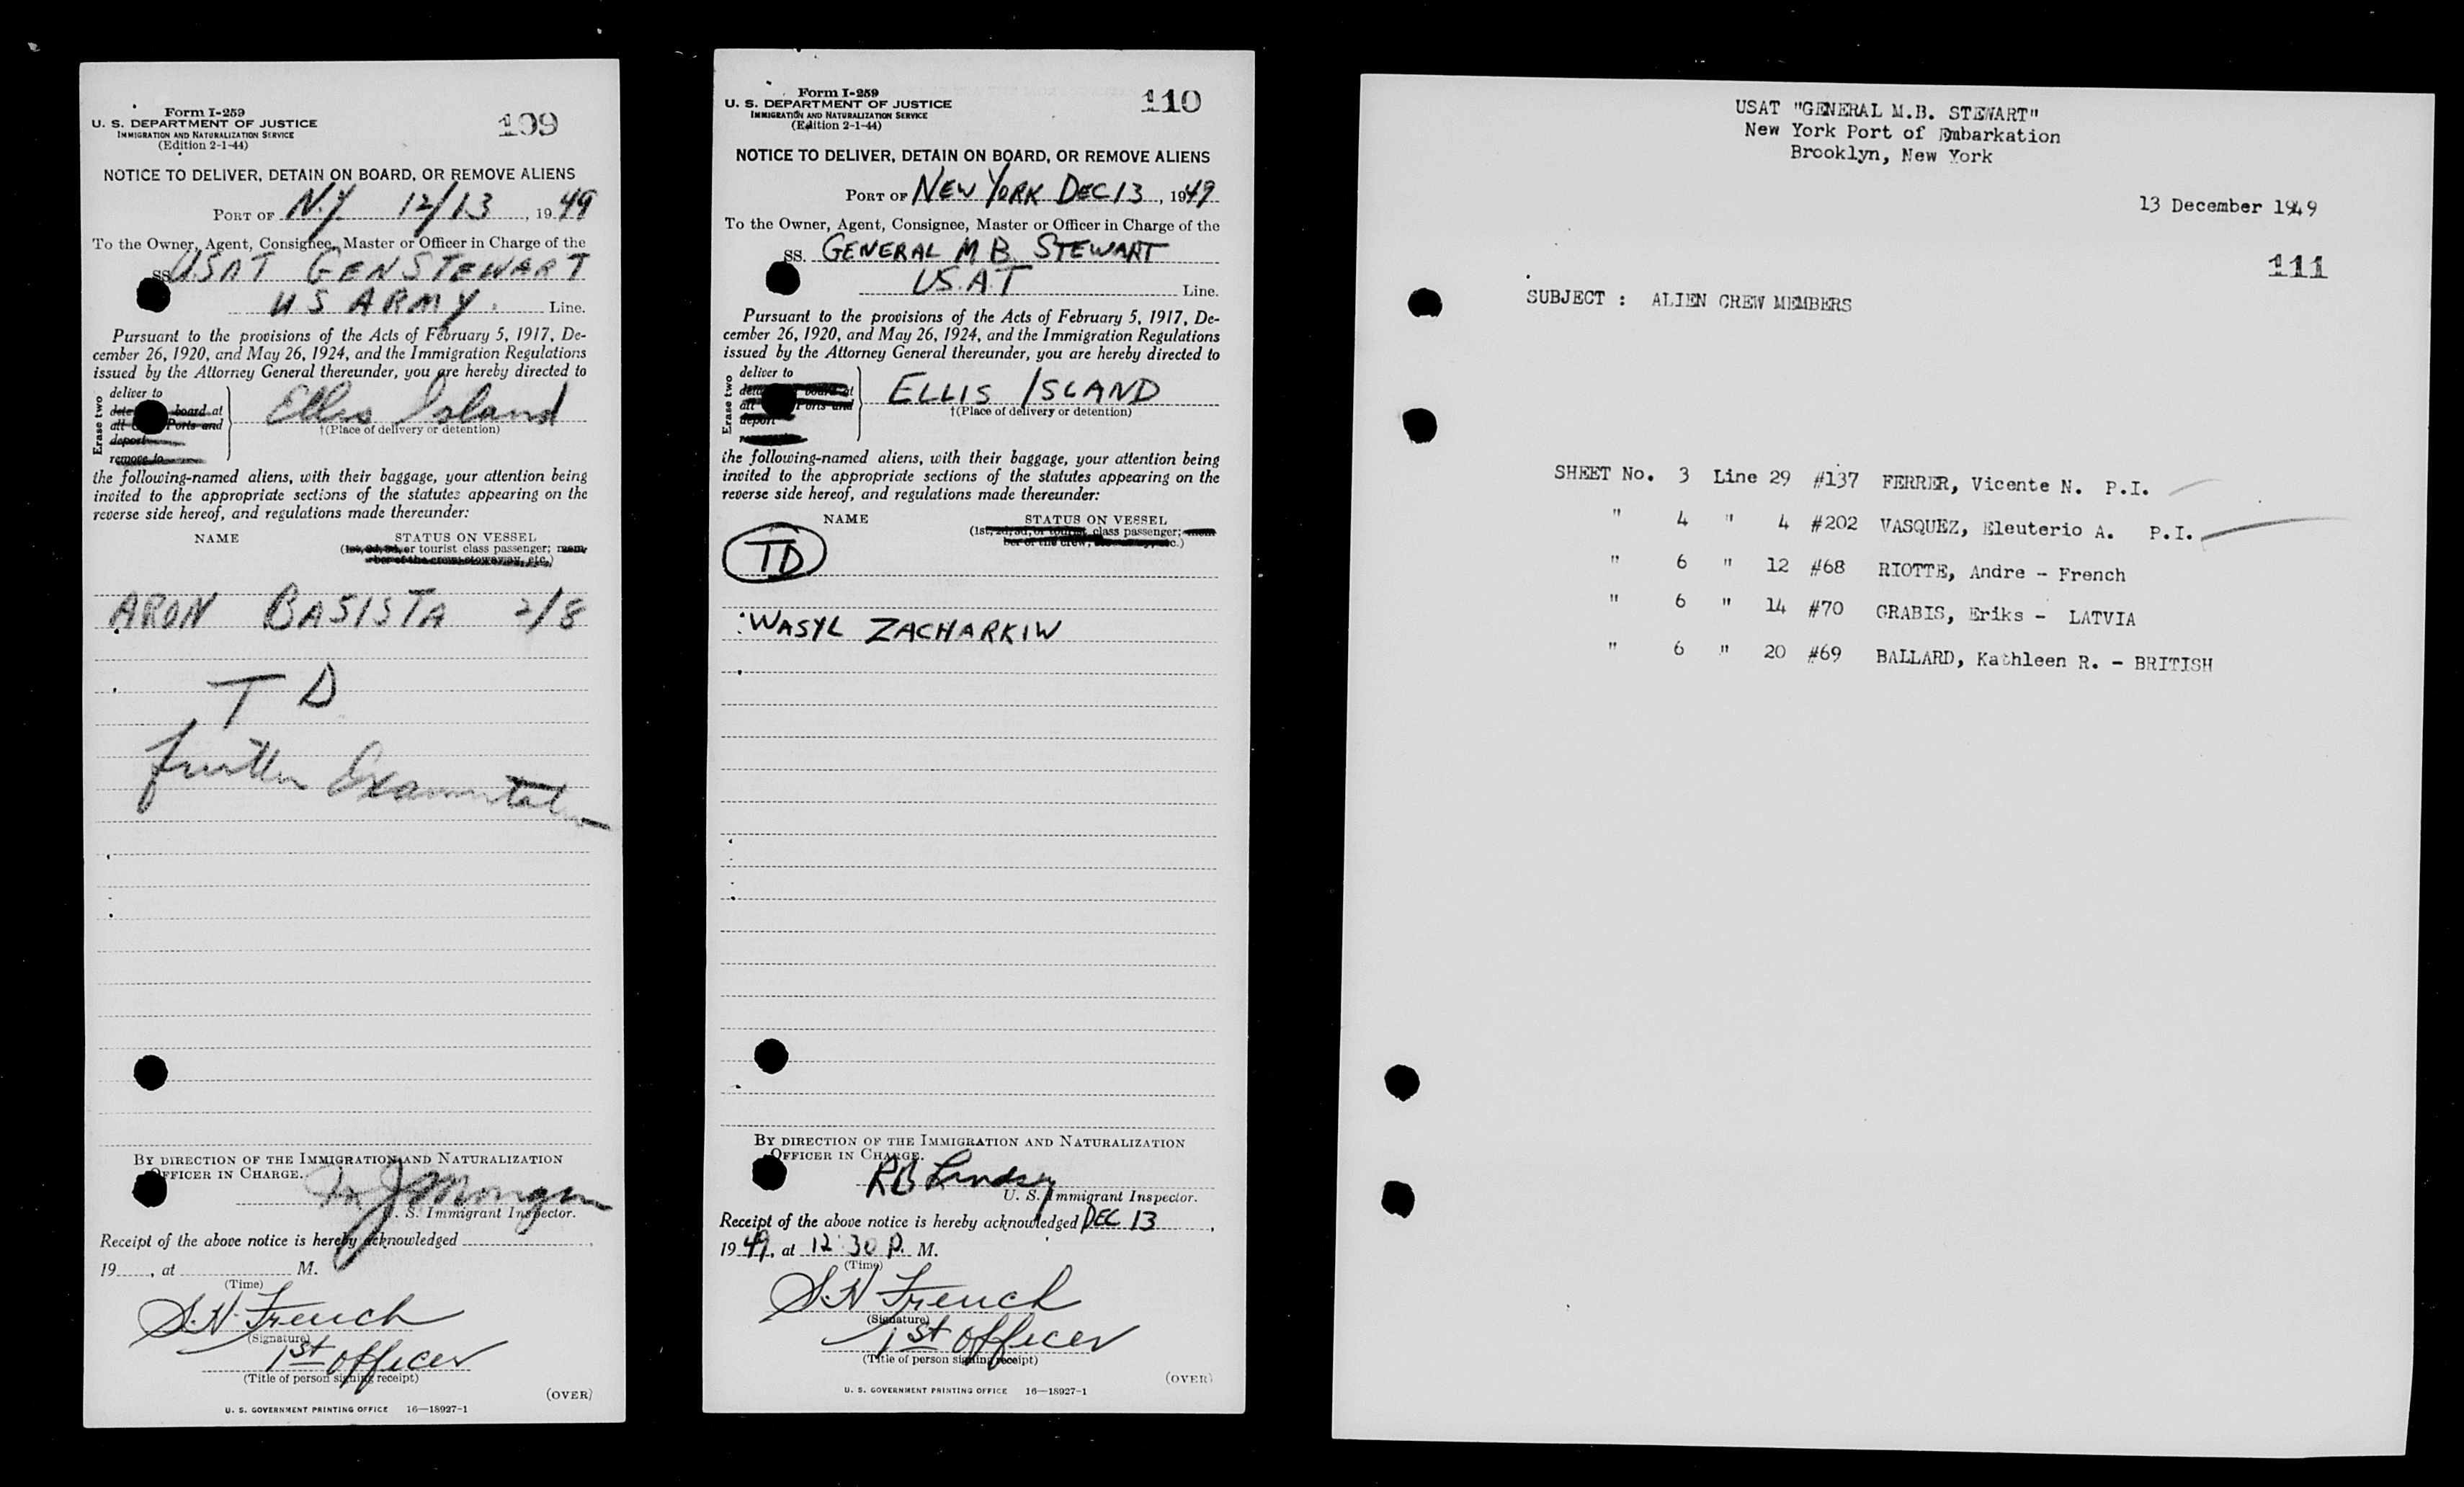 Form I-259
U. S. DEPARTMENT OF JUSTICE
IMMIGRATION AND NATURALIZATION SERVICE
(Edition 2-1-44)
109
NOTICE TO DELIVER, DETAIN ON BOARD, OR REMOVE ALIENS
PORT OF N.Y. 12/13, 1949
To the Owner, Agent, Consignee, Master or Officer in Charge of the
SS. USAT GEN STEWART
US ARMY. Line.
Pursuant to the provisions of the Acts of February 5, 1917, De-
cember 26, 1920, and May 26, 1924, and the Immigration Regulations
issued by the Attorney General thereunder, you are hereby directed to
Erase two
deliver to
board at
all Ports and
deport
remove to
Ellis Island
†(Place of delivery or detention)
the following-named aliens, with their baggage, your attention being
invited to the appropriate sections of the statutes appearing on the
reverse side hereof, and regulations made thereunder:
NAME STATUS ON VESSEL
(1st, 2d, 3d, or tourist class passenger; mem-
ber of the crew, stowaway, etc.)
ARON BASISTA 2/8
T D
further Examination
BY DIRECTION OF THE IMMIGRATION AND NATURALIZATION
OFFICER IN CHARGE.
U. S. Immigrant Inspector.
Receipt of the above notice is hereby acknowledged
19, at M.
(Time)
S.H. French
(Signature)
1st officer
(Title of person signing receipt)
(OVER)
U. S. GOVERNMENT PRINTING OFFICE 16—18927-1
Form I-259
U. S. DEPARTMENT OF JUSTICE
IMMIGRATION AND NATURALIZATION SERVICE
(Edition 2-1-44)
110
NOTICE TO DELIVER, DETAIN ON BOARD, OR REMOVE ALIENS
PORT OF NEW YORK DEC 13, 1949
To the Owner, Agent, Consignee, Master or Officer in Charge of the
SS. GENERAL M B STEWART
U.S.A.T Line.
Pursuant to the provisions of the Acts of February 5, 1917, De-
cember 26, 1920, and May 26, 1924, and the Immigration Regulations
issued by the Attorney General thereunder, you are hereby directed to
Erase two
deliver to
board at
all Ports and
deport
ELLIS ISLAND
†(Place of delivery or detention)
the following-named aliens, with their baggage, your attention being
invited to the appropriate sections of the statutes appearing on the
reverse side hereof, and regulations made thereunder:
NAME STATUS ON VESSEL
(1st, 2d, 3d, or tourist class passenger; mem-
ber of the crew, etc.)
TD
WASYL ZACHARKIW
BY DIRECTION OF THE IMMIGRATION AND NATURALIZATION
OFFICER IN CHARGE.
RB Lindsey
U. S. Immigrant Inspector.
Receipt of the above notice is hereby acknowledged DEC 13,
1949, at 12:30 P. M.
(Time)
S.H French
(Signature)
1st officer
(Title of person signing receipt)
(OVER)
U. S. GOVERNMENT PRINTING OFFICE 16—18927-1
USAT "GENERAL M.B. STEWART"
New York Port of Embarkation
Brooklyn, New York
13 December 1949
111
SUBJECT : ALIEN CREW MEMBERS
SHEET No. 3 Line 29 #137 FERRER, Vicente N. P.I.
" 4 " 4 #202 VASQUEZ, Eleuterio A. P.I.
" 6 " 12 #68 RIOTTE, Andre - French
" 6 " 14 #70 GRABIS, Eriks - LATVIA
" 6 " 20 #69 BALLARD, Kathleen R. - BRITISH